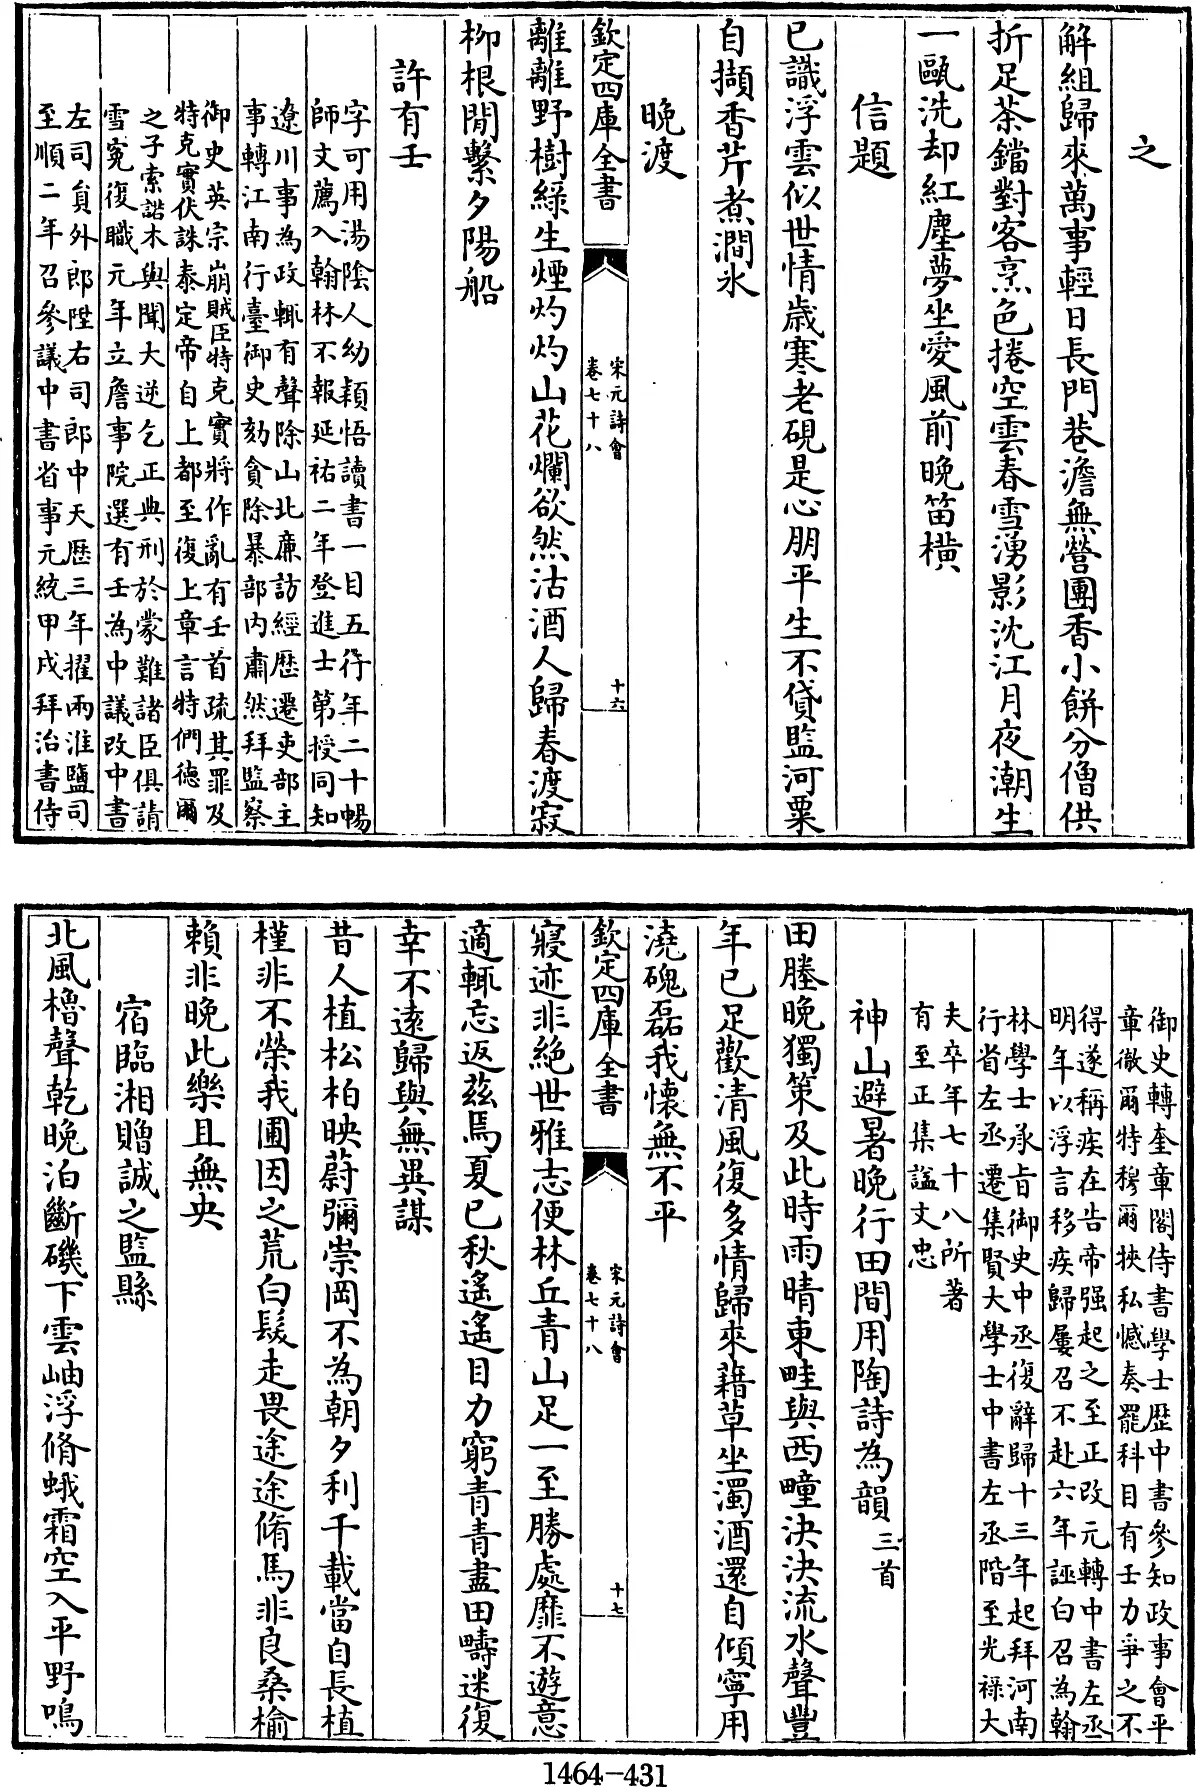 之
解組歸來萬事輕日長門巷澹無營團香小餅分僧供
折足茶鐺對客烹色捲空雲春雪湧影沈江月夜潮生
一甌洗却紅塵夢坐愛風前晚笛橫
信題
已識浮雲似世情歲寒老硯是心朋平生不貸監河粟
自擷香芹煮澗氷
晚渡
欽定四庫全書
宋元詩會
卷七十八
十六
離離野樹綠生煙灼灼山花爛欲然沽酒人歸春渡寂
柳根閒繫夕陽船
許有壬
字可用湯陰人幼穎悟讀書一目五行年二十暢
師文薦入翰林不報延祐二年登進士第授同知
遼川事為政輒有聲除山北廉訪經歷遷吏部主
事轉江南行臺御史劾貪除暴部內肅然拜監察
御史英宗崩賊臣特克實將作亂有壬首疏其罪及
特克實伏誅泰定帝自上都至復上章言特們德爾
之子索諾木與聞大逆乞正典刑於蒙難諸臣俱請
雪冤復職元年立詹事院選有壬為中議改中書
左司員外郎陞右司郎中天歷三年擢兩淮鹽司
至順二年召參議中書省事元統甲戌拜治書侍
御史轉奎章閣侍書學士歷中書參知政事會平
章徹爾特穆爾挾私憾奏罷科目有壬力爭之不
得遂稱疾在告帝强起之至正改元轉中書左丞
明年以浮言移疾歸屢召不赴六年誣白召為翰
林學士承旨御史中丞復辭歸十三年起拜河南
行省左丞遷集賢大學士中書左丞階至光祿大
夫卒年七十八所著
有至正集諡文忠
神山避暑晚行田間用陶詩為韻三首
田塍晚獨策及此時雨晴東畦與西疃決決流水聲豐
年已足歡清風復多情歸來藉草坐濁酒還自傾寧用
澆磈磊我懷無不平
欽定四庫全書
宋元詩會
卷七十八
十七
寢迹非絕世雅志便林丘青山足一至勝處靡不遊意
適輒忘返茲焉夏已秋遙遙目力窮青青盡田疇迷復
幸不遠歸與無異謀
昔人植松柏映蔚彌崇岡不為朝夕利千載當自長植
槿非不榮我圃因之荒白髮走畏途途脩馬非良桑榆
賴非晚此樂且無央
宿臨湘贈誠之監縣
北風櫓聲乾晚泊斷磯下雲岫浮脩蛾霜空入平野鳴
1464-431